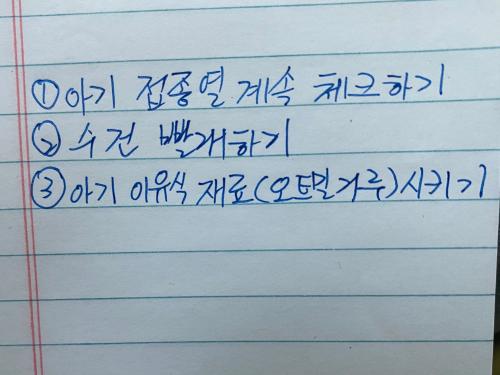 ① 아기 접종열 계속 체크하기
② 수건 빨래하기
③ 아기 이유식 재료(오트밀가루)시키기